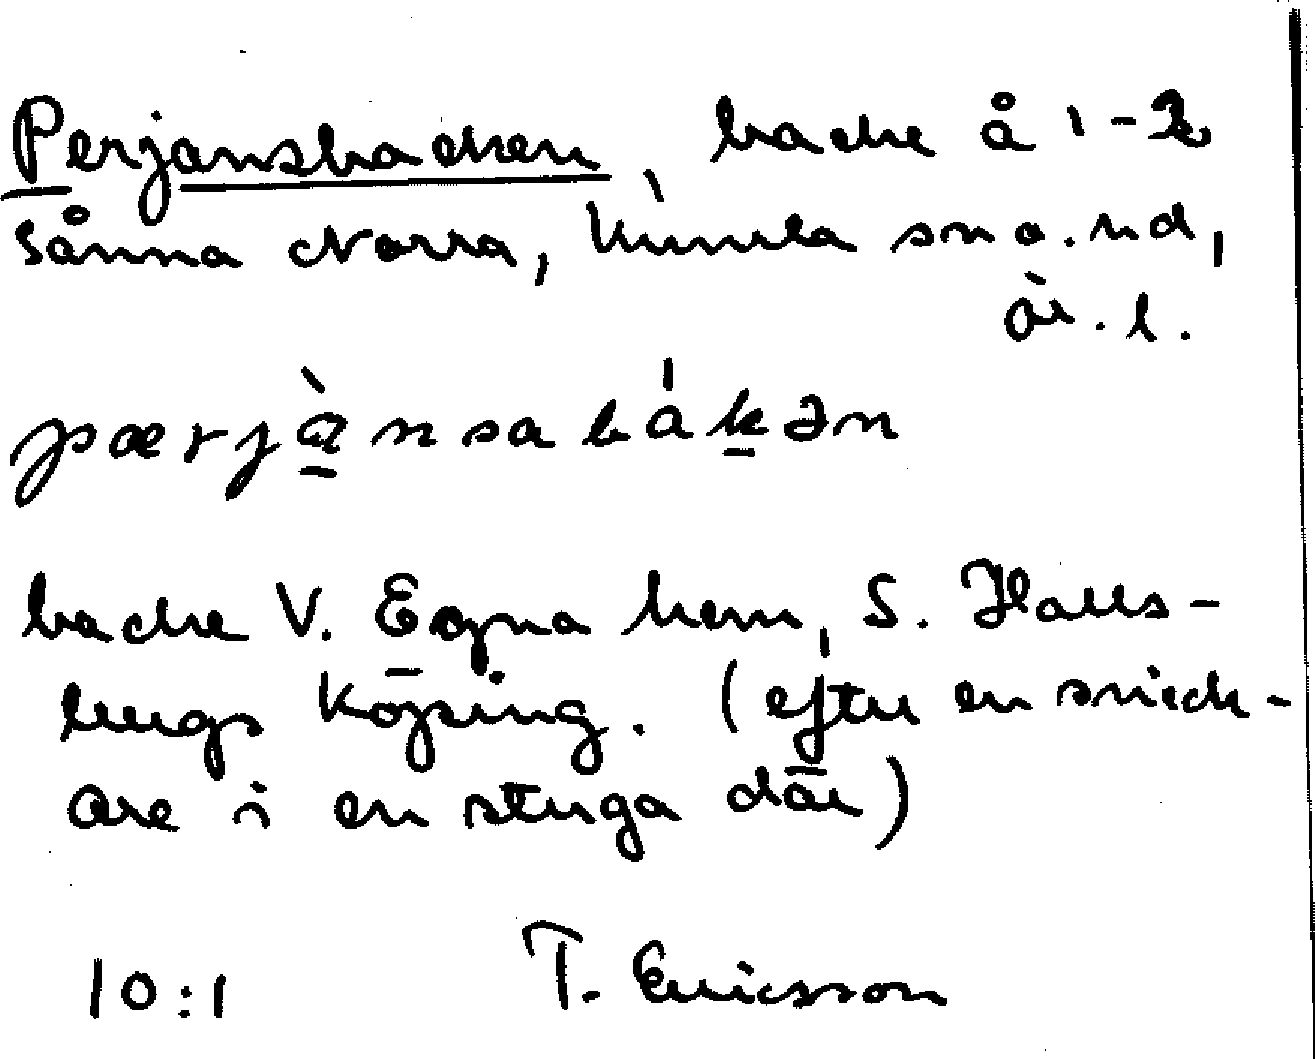 Perjansbacken, backe å 1-2
Sånna Norra, Kumla sn o. hd,
är. l.
pærjànsabákən
backe V. Egna hem, S. Halls-
bergs köping. (efter en snick-
are i en stuga där)
10:1 T. Ericsson